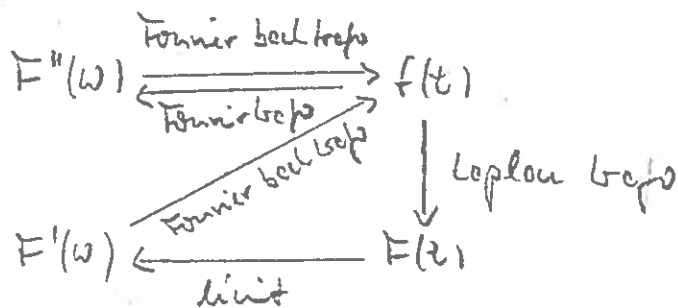 Fourier backtrafo
F"(ω) f(t)
Fouriertrafo
Fourier backtrafo
Laplace trafo
F'(ω) F(z)
limit